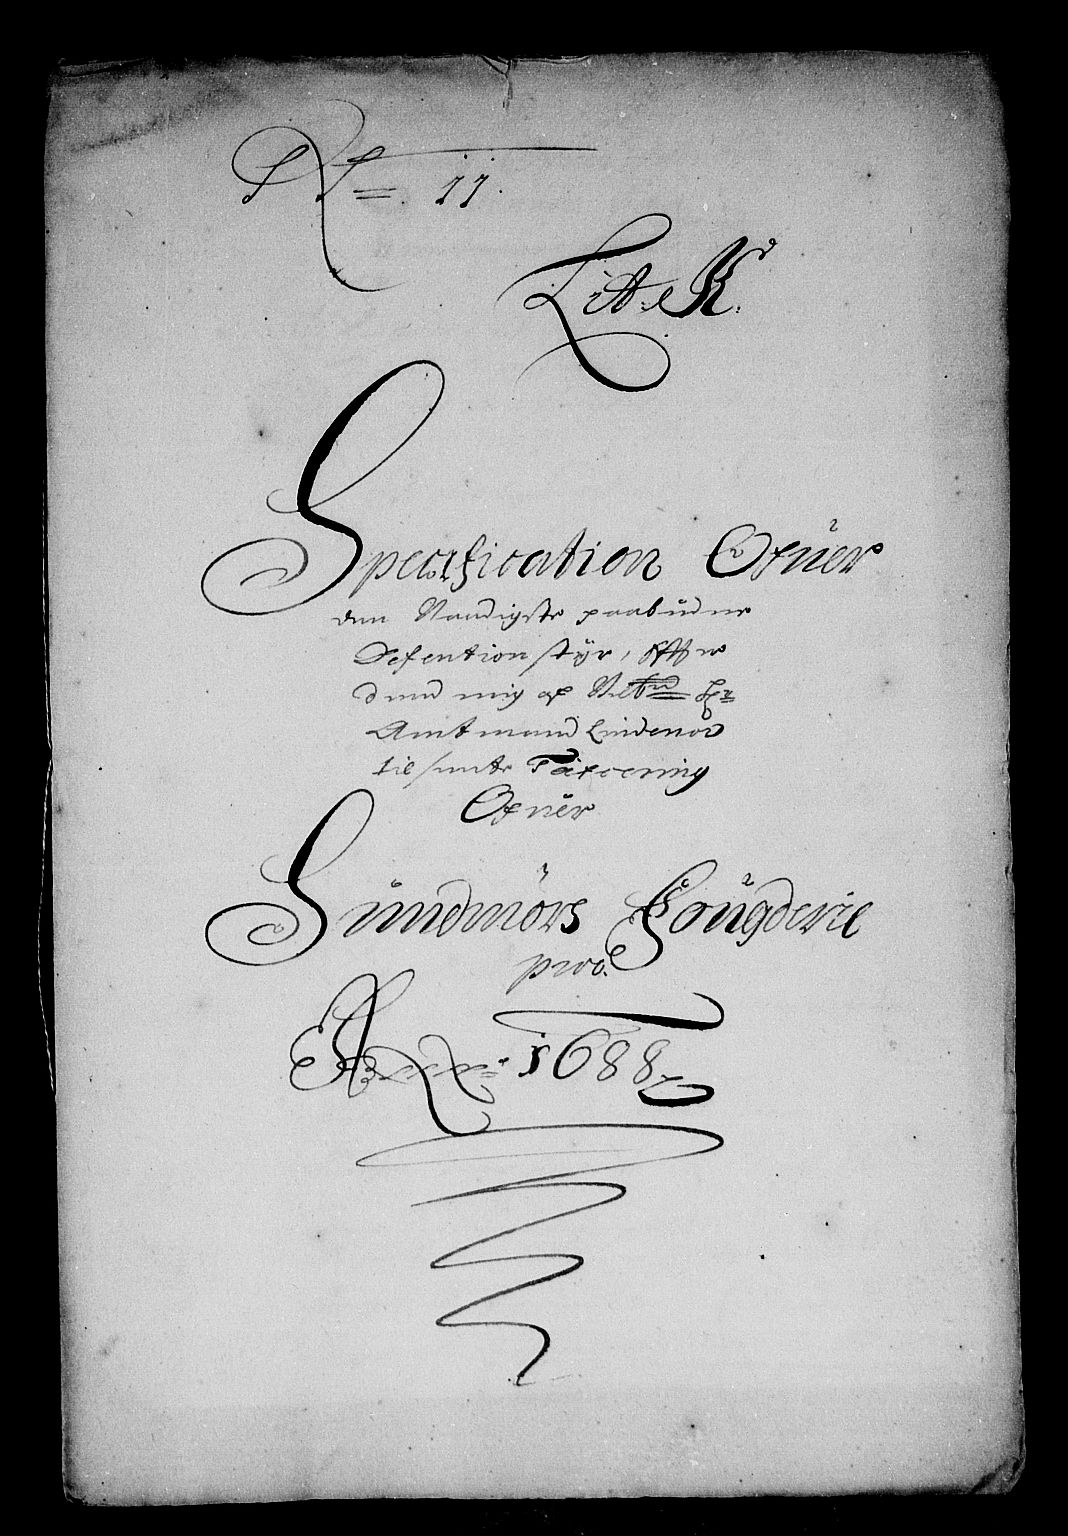 N= 11.
Litt. K.
Specification Ofuer
den Naadigste paabudne
Defentions styr, effter
den mig af Velb: Hr
Amtmand Lindenov
tilsente Taxcering
Ofuer
Sundmörs Fougderie
pro.
Anno 1688